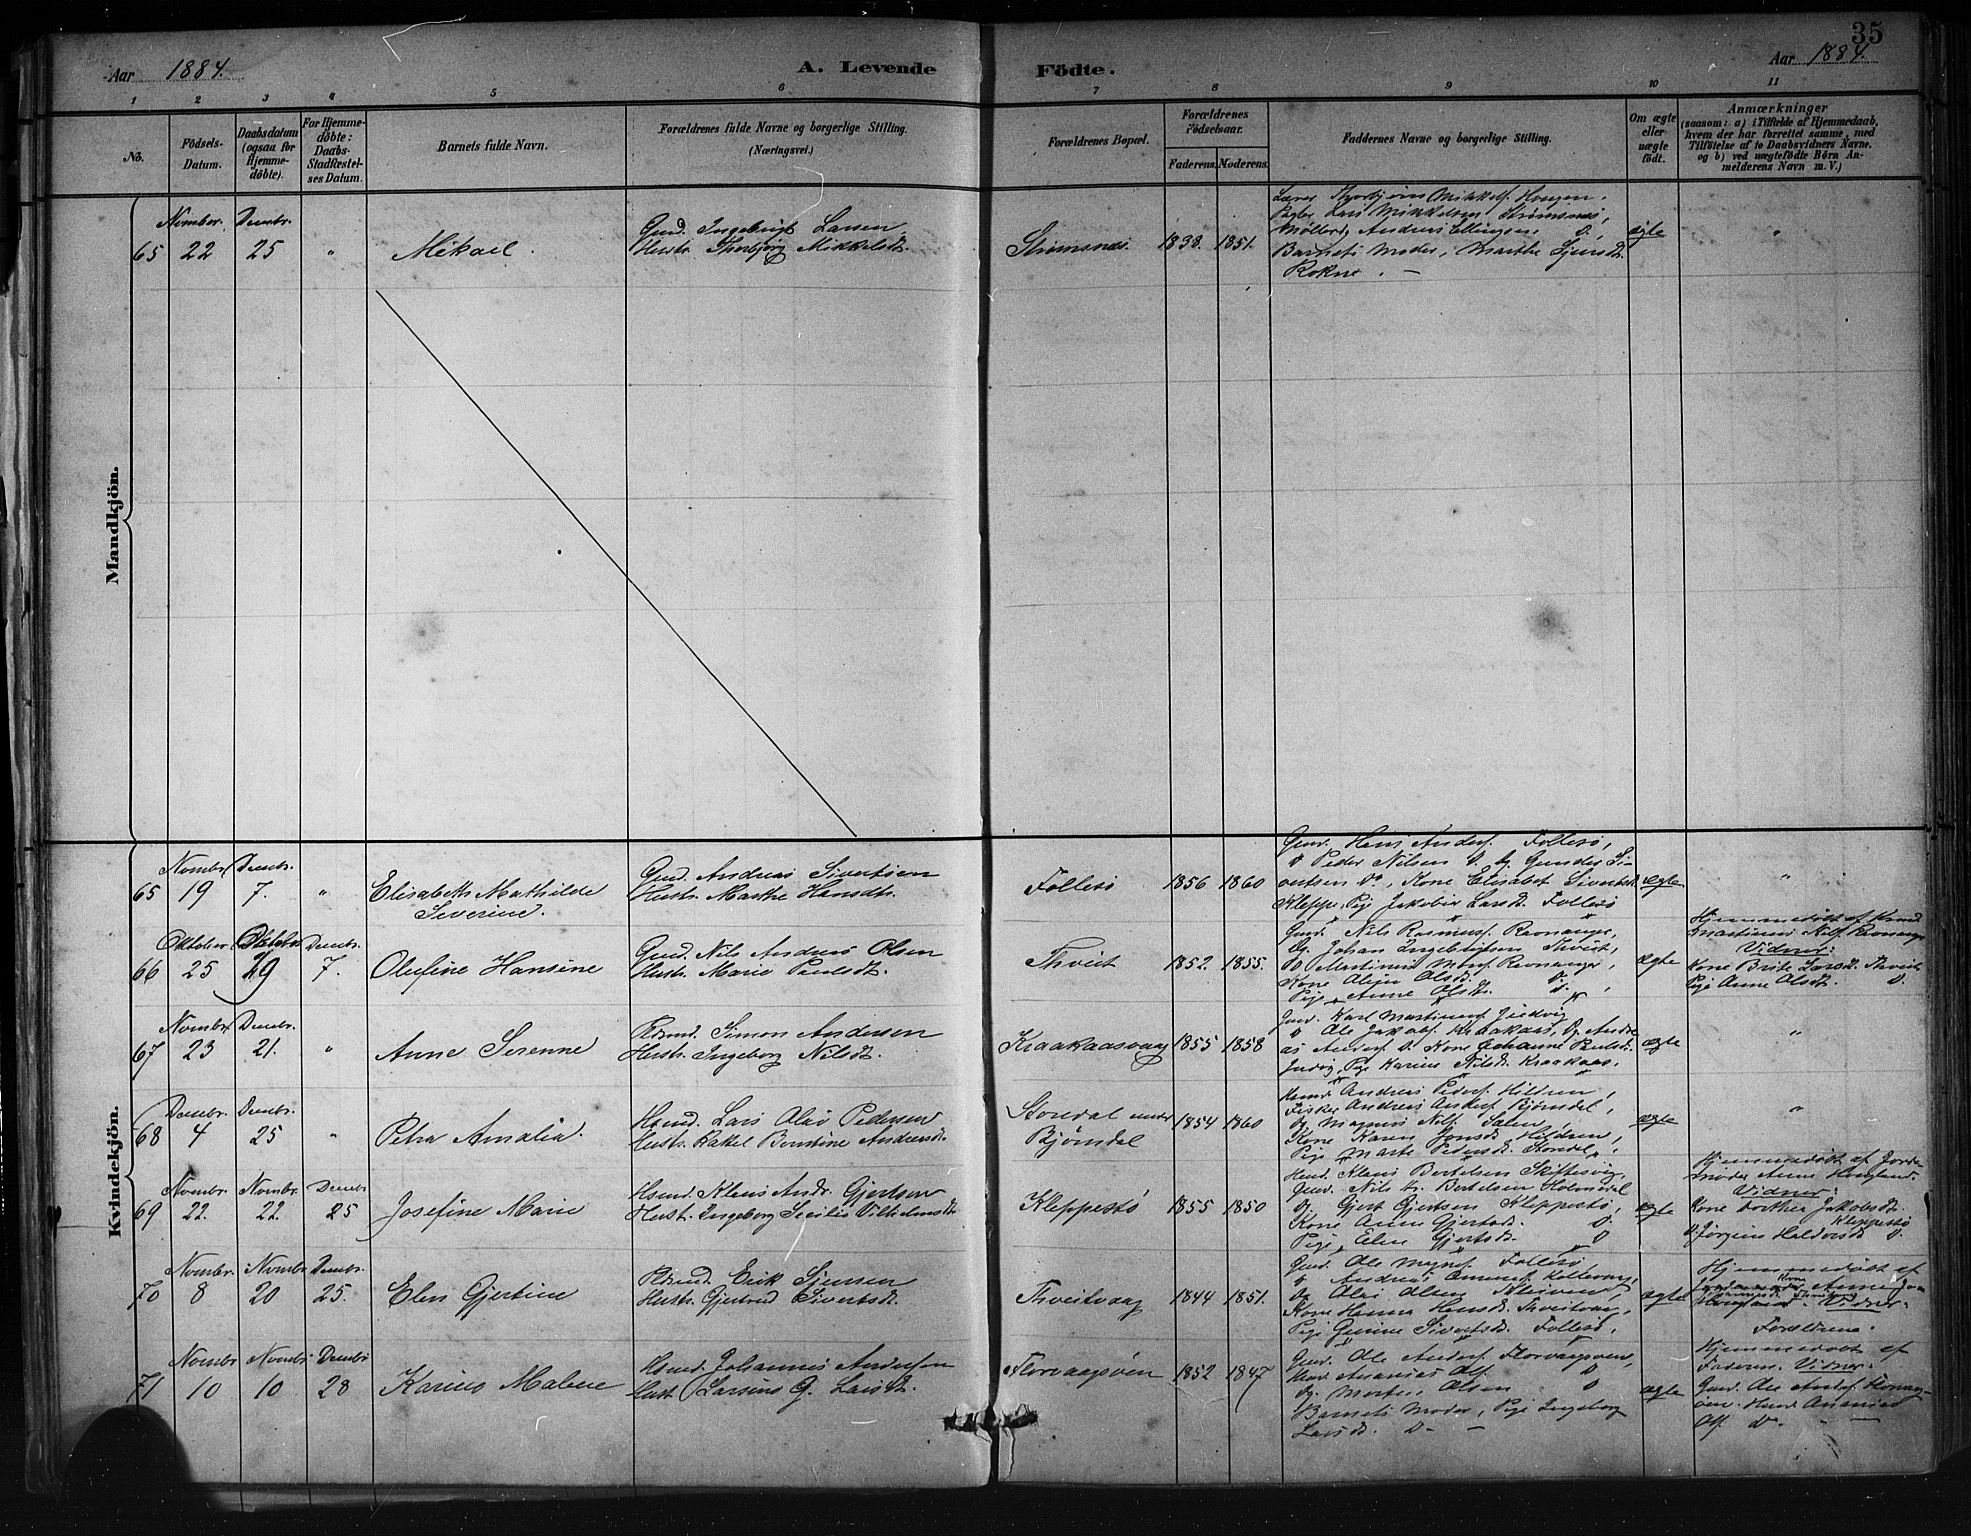 35
Aar 1884. A. Levende Födte. Aar 1884.
1 2 3 4 5 6 7 8 9 10 11
No.
Födsels-
Datum.
Daabsdatum
(ogsaa for
Hjemme-
döbte).
For Hjemme-
döbte:
Daabs-
Stadfæstel-
ses Datum.
Barnets fulde Navn.
Forældrenes fulde Navne og borgerlige Stilling.
(Næringsvei.)
Forældrenes Bopæl.
Forældrenes
Födselsaar.
Faderens. Moderens.
Faddernes Navne og borgerlige Stilling.
Om ægte
eller
uægte
født.
Anmærkninger
(saasom: a) i Tilfælde af Hjemmedaab,
hvem der har forrettet samme, med
Tilföielse af to Daabsvidners Navne,
og b) ved uægtefödte Börn An-
melderens Navn m. V.)
Mandkjön.
65
Novmbr.
22
Decmbr.
25
"
Mikael.
Gmd. Ingebrigt Larsen,
Hustr. Thorbjørg Mikkelsdt.
Strømsnæs
1838. 1851.
Lærer Thorbjørn Mikkels. Haugen.
Lars Mikkelsen Strømsnæs,
Andreas Ellingsen D.,
Barnets Moder, Marthe Sjursdt.
Rokne. —
ægte
"
Kvindekjön.
65
Novmbr
19
Decmbr.
7.
"
Elisabeth Mathilde
Severine.
Gmd. Andreas Sivertsen
Hustr. Marthe Hansdt.
Follesø
1856 1860
Gmd. Hans Anders. Follesø,
" Peder Nilsen D. Ug. Gunder Si-
vertsen Do, Kone Elisabet Sivertsdt.
Kleppe, Pige Jakobine Larsdt. Follesø
ægte
"
66
Oktober
25
Oktober
29
Decmbr.
7.
Olufine Hansine
Gmd. Nils Andreas Olsen
Hustr. Marie Paulsdt.
Thveit
1852. 1855.
Gmd. Nils Rasmus. Ravnanger,
Ug. Johan Ingebrigtsen Thveit,
D. Martinus Ravnanger,
Kone Olsdt. D.
Pige Anne Olsdt. D.
ægte
Hjemmedøbt af
Martinus Nils. Ravnanger
Vidner:
Kone Brite Larsdt. Thveit
Pige Anne Olsdt. D.
67
Novmbr
23
Decmbr.
21.
"
Anne Serenne
Pdsmd. Simon Andersen
Hustr. Ingeborg Nilsdt.
Kraakaasvaag
1855 1858
Gmd. Karl Martinus.
" Ole Jakobs. Kraakaas, Ug. Andre-
as Anders. D. Kone Johanne Paulsdt.
Pige Karine Nilsdt. Kraakaas.
ægte
"
68
Decmbr.
4
Decmbr.
25
"
Petra Amalia.
Hsmd. Lars Olai Pedersen
Hustr. Rakel Berntine Andersdt.
Storedal under
Bjørndal
1854 1860
Andreas Peders. Hildren,
Fisker Andreas Anders. Bjørndal,
Ug. Magnus Nils. Salen,
Kone Karen Jonsdt. Hildren,
Pige Marte Pedersdt. Stordal,
ægte
"
69
Novmbr.
22.
Novmbr.
22.
Decmbr
25
Josefine Marie
Hsmd. Klaus Andr. Gjertsen
Hustr. Ingeborg Secilie Vilhelmsdt.
Kleppestø
1855 1850
Hmd. Klaus Bertelsen Skiftesvig,
Gmd. Nils Bertelsen Holmedal
Ug. Gjert Gjertsen Kleppestø,
Kone Anne Gjertsdt. D.
Pige Elen Gjertsdt. D
ægte
Hjemmedøbt af Jorde-
moder Anne Hougland.
Vidner:
Kone Dorthea Jakobsdt.
Kleppestø
D. Jørgine Haldorsdt. D.
70
Novmbr.
8
Novmbr
20
Decmbr.
25.
Elen Gjertine
Pdsmd. Erik Sjursen
Hustr. Gjertrud Sivertsdt.
Thveitvaag
1844 1851.
Gmd. Ole Magns. Follesø
Ug. Olai Olsen
Kone Hanna Hansdt. Thveitvaag,
Pige Gurine Sivertsdt. Follesø,
ægte
Hjemmedøbt af
Vidner:
Forældrene.
71
Novmbr
10
Novmbr
10
Decmbr
28
Karius Malene
Hsmd. Johannes Andersen
Hust. Larsine G. Larsdt.
Florvaagsøen
1852 1847
Gmd. Ole Anders. Florvaagsøen,
Ananias Ols. D
Ug. Morten Olsen D
Barnets Moder, Pige Ingeborg
Larsdt. D. —
ægte
Hjemmedøbt af
Faderen. Vidner:
Gmd. Ole Anders. Florvaags-
øen. Ananias
Ols. Do —